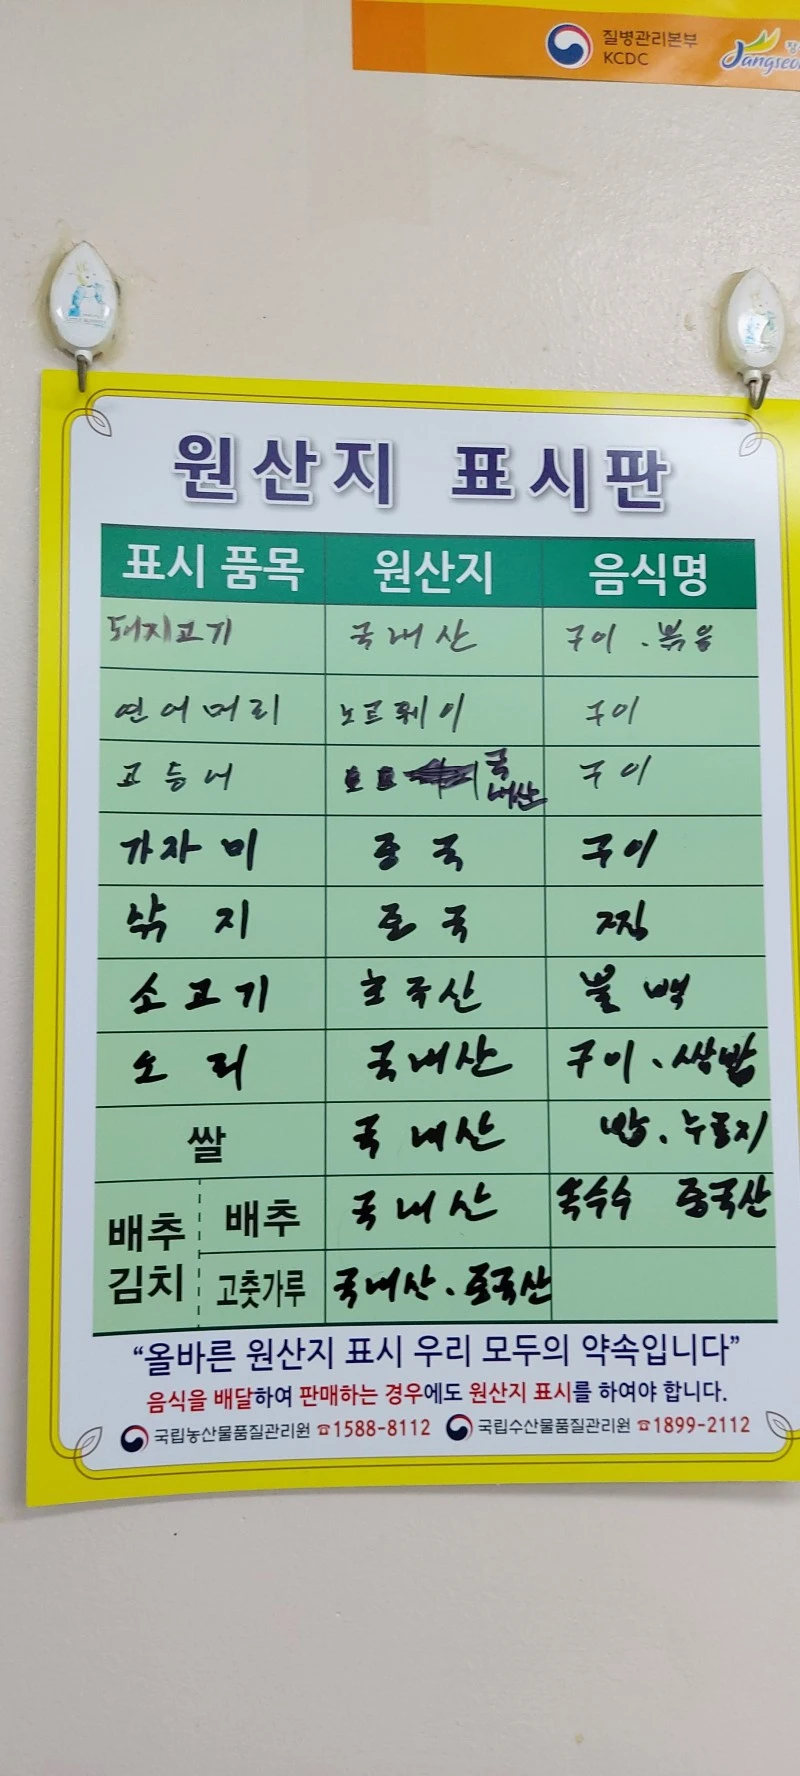 질병관리본부
KCDC
Jangseo
원산지 표시판
표시 품목 원산지 음식명
돼지고기 국내산 구이 . 볶음
연어머리 노르웨이 구이
고등어 국내산 구이
가자미 중국 구이
낙지 중국 찜
소고기 호주산 불백
오리 국내산 구이 . 쌈밥
쌀 국내산 밥 . 누룽지
배추김치 배추 국내산 옥수수 중국산
고춧가루 국내산 . 중국산
“올바른 원산지 표시 우리 모두의 약속입니다”
음식을 배달하여 판매하는 경우에도 원산지 표시를 하여야 합니다.
국립농산물품질관리원 ☎1588-8112 국립수산물품질관리원 ☎1899-2112